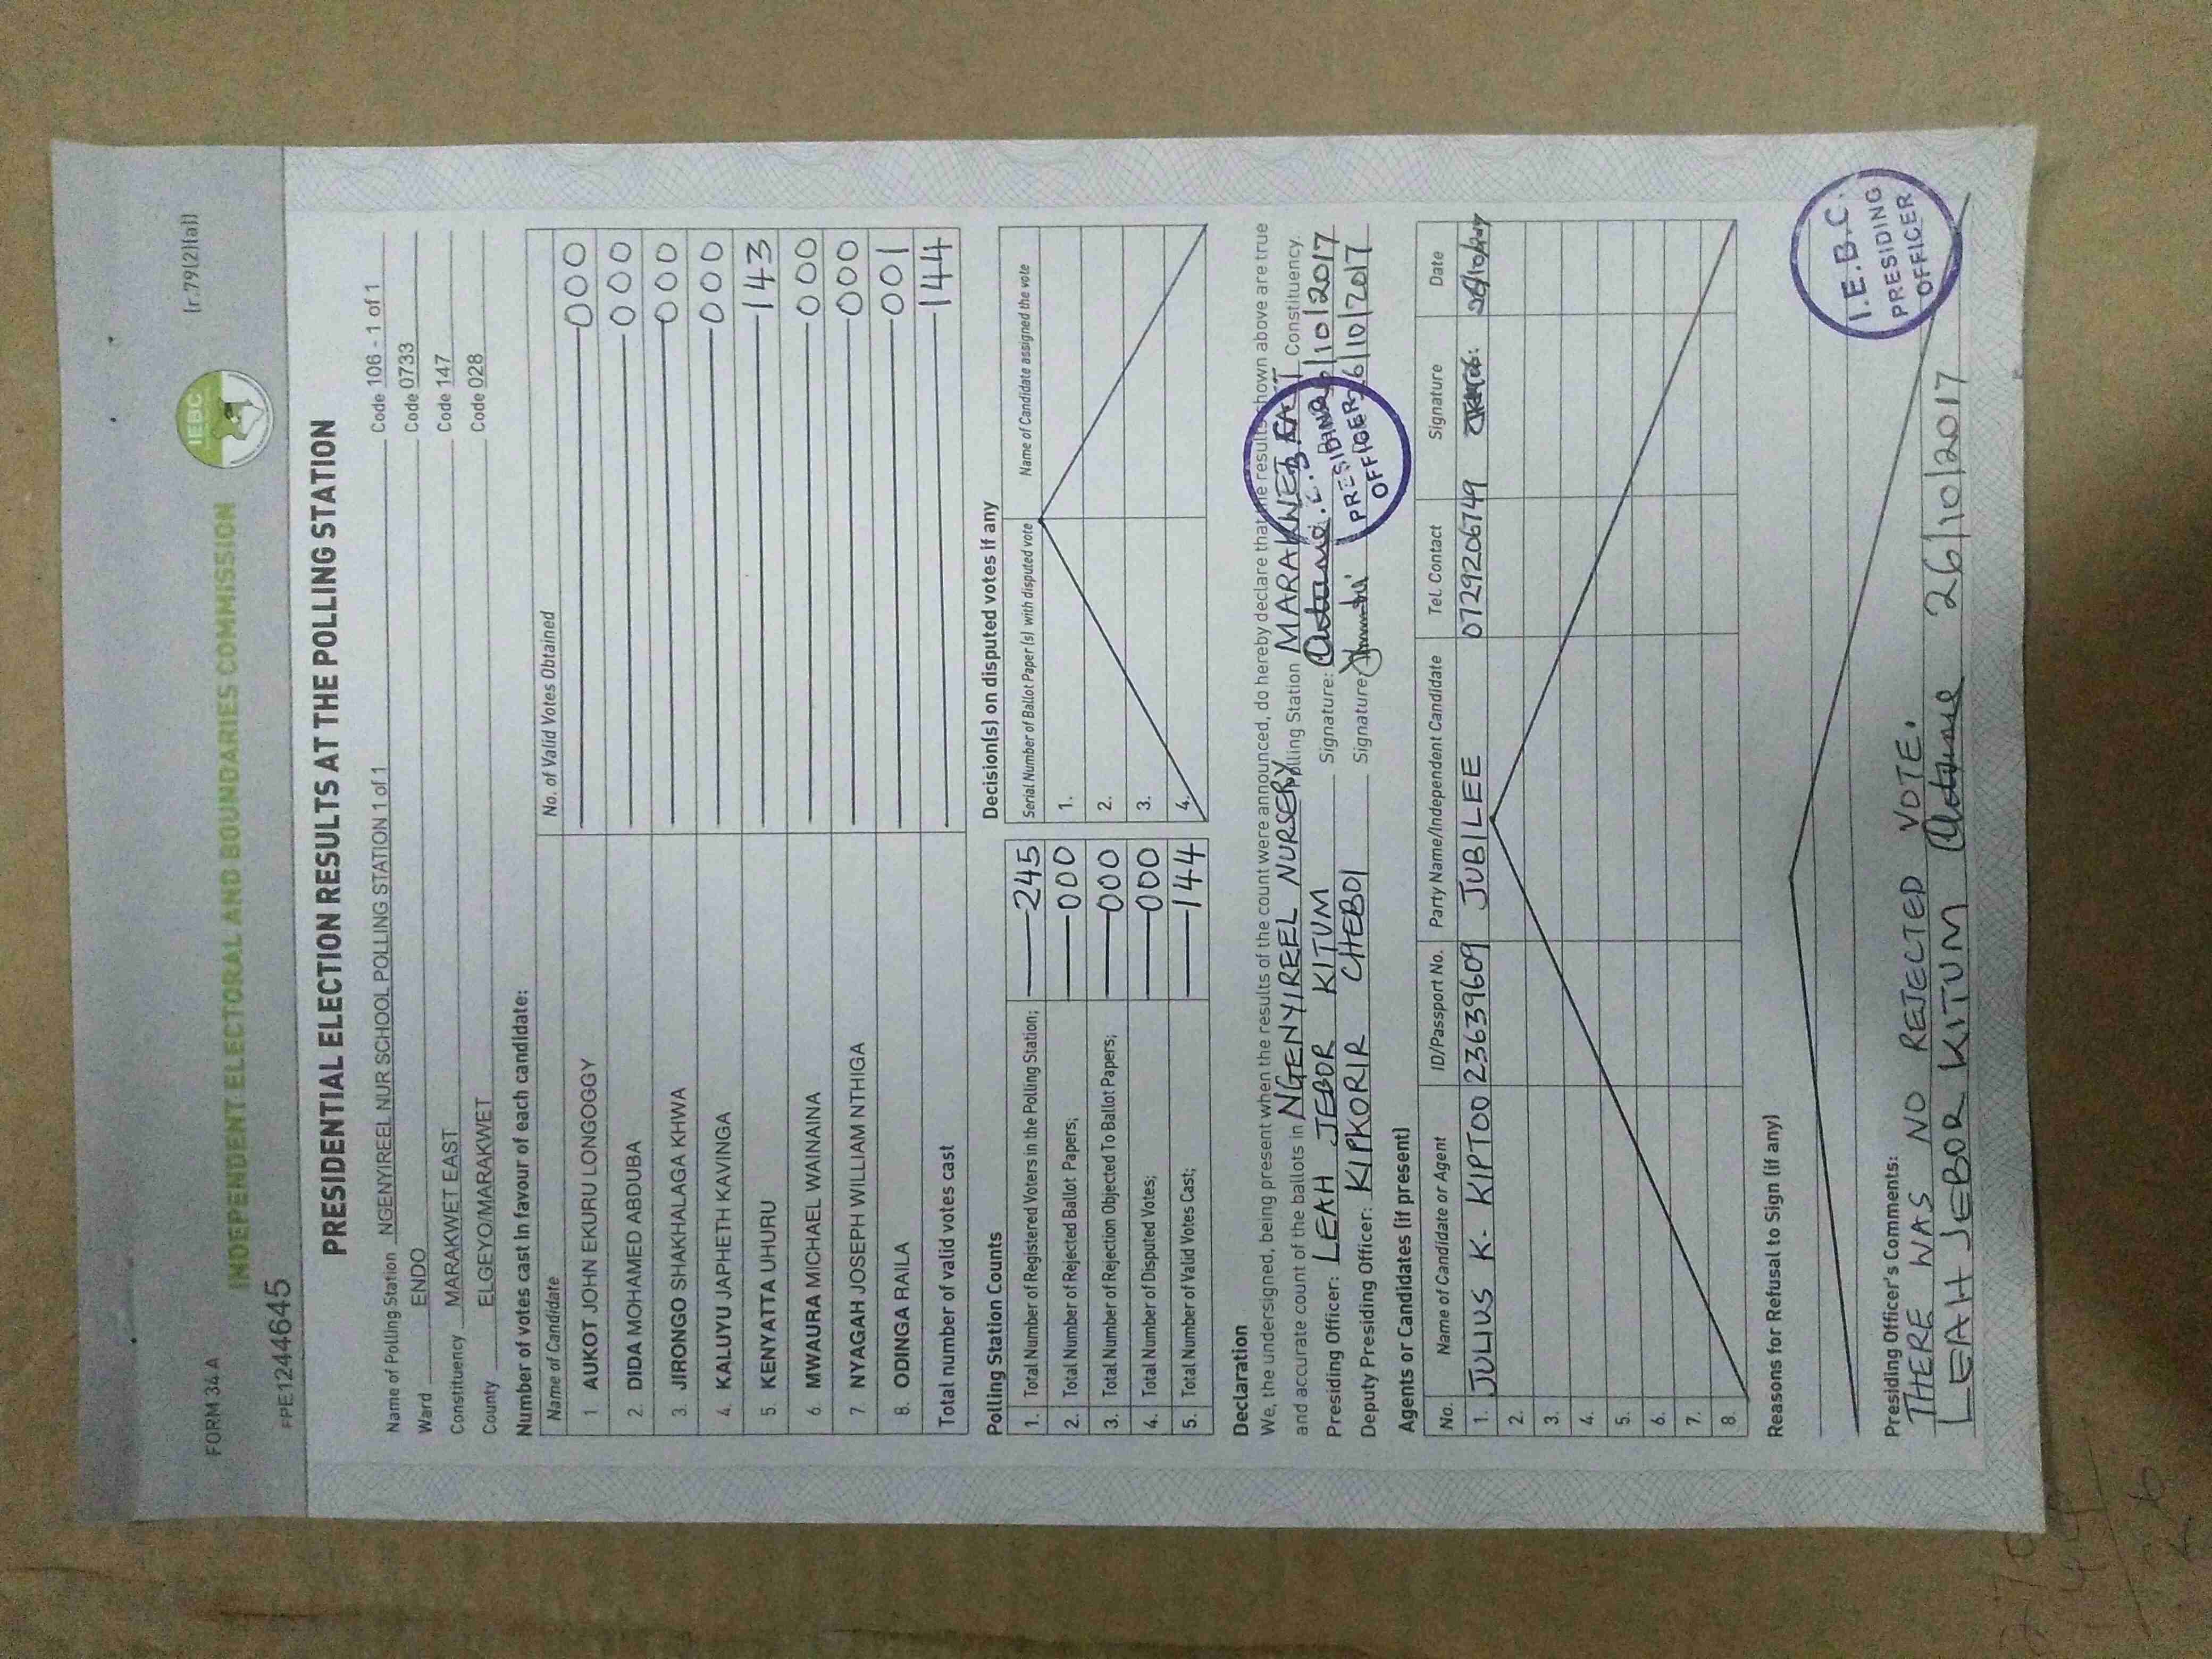 FORM 34 A
[r.79(2)(a)]
INDEPENDENT ELECTORAL AND BOUNDARIES COMMISSION
IEBC
FPE1244645
PRESIDENTIAL ELECTION RESULTS AT THE POLLING STATION
Name of Polling Station NGENYIREEL NUR SCHOOL POLLING STATION 1 of 1 Code 106 - 1 of 1
Ward ENDO Code 0733
Constituency MARAKWET EAST Code 147
County ELGEYO/MARAKWET Code 028
Number of votes cast in favour of each candidate:
Name of Candidate No. of Valid Votes Obtained
1 AUKOT JOHN EKURU LONGOGGY 000
2. DIDA MOHAMED ABDUBA 000
3. JIRONGO SHAKHALAGA KHWA 000
4. KALUYU JAPHETH KAVINGA 000
5. KENYATTA UHURU 143
6. MWAURA MICHAEL WAINAINA 000
7. NYAGAH JOSEPH WILLIAM NTHIGA 000
8. ODINGA RAILA 001
Total number of valid votes cast 144
Polling Station Counts
1. Total Number of Registered Voters in the Polling Station; 245
2. Total Number of Rejected Ballot Papers; 000
3. Total Number of Rejection Objected To Ballot Papers; 000
4. Total Number of Disputed Votes; 000
5. Total Number of Valid Votes Cast; 144
Decision(s) on disputed votes if any
Serial Number of Ballot Paper (s) with disputed vote Name of Candidate assigned the vote
1.
2.
3.
4.
Declaration
We, the undersigned, being present when the results of the count were announced, do hereby declare that the results shown above are true
and accurate count of the ballots in NGENYIREEL NURSERY Polling Station MARAKWET EAST Constituency.
Presiding Officer: LEAH JEBOR KITUM Signature: 26/10/2017
Deputy Presiding Officer: KIPKORIR CHEBOI Signature 26/10/2017
PRESIDING
OFFICER
Agents or Candidates (if present)
No. Name of Candidate or Agent ID/Passport No. Party Name/Independent Candidate Tel. Contact Signature Date
1. JULIUS K. KIPTOO 23639609 JUBILEE 0729206749 26/10/2017
2.
3.
4.
5.
6.
7.
8.
Reasons for Refusal to Sign (if any)
Presiding Officer's Comments:
THERE WAS NO REJECTED VOTE.
LEAH JEBOR KITUM 26/10/2017
I.E.B.C.
PRESIDING
OFFICER